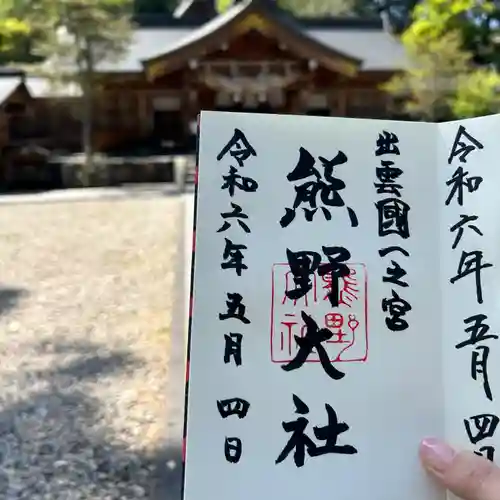 出雲國一之宮
熊野大社
令和六年五月四日
熊野大社
令和六年五月四日